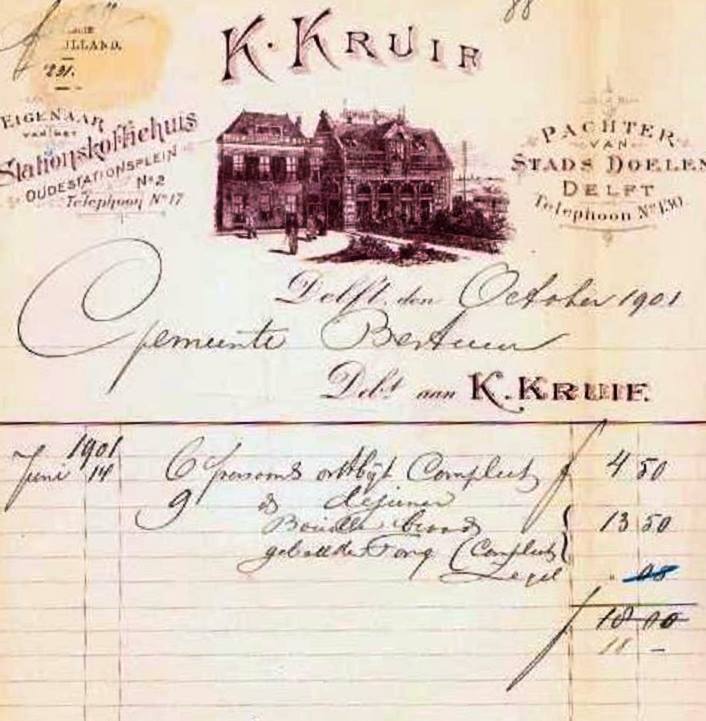 88
K. KRUIF
LLAND.
291.
EIGENAAR
VAN HET
Stationskoffiehuis
OUDESTATIONSPLEIN
No 2
Telephoon No 17
PACHTER
VAN
STADS DOELEN
DELFT
Telephoon No 130
Delft, den October 1901
Gemeente Bestuur
Debt aan K. KRUIF.
1901
Juni 14 6 persoons ontbijt Compleet f 4 50
9 do dejeuner
Bouillon brood 13 50
gebakken Tong (Compleet)
Zegel 05
f 18 00
18 -